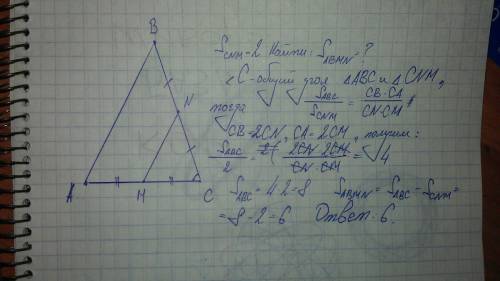 B
N
A
M
C
S_CNM = 2. Найти: S_ABMN = ?
∠C - общий угол △ABC и △CNM,
тогда S_ABC / S_CNM = CB·CA / CN·CM
CB = 2CN, CA = 2CM, получим:
S_ABC / 2 = 2CN·2CM / CN·CM = 4
S_ABC = 4·2 = 8 S_ABMN = S_ABC - S_CNM =
= 8 - 2 = 6 Ответ: 6.